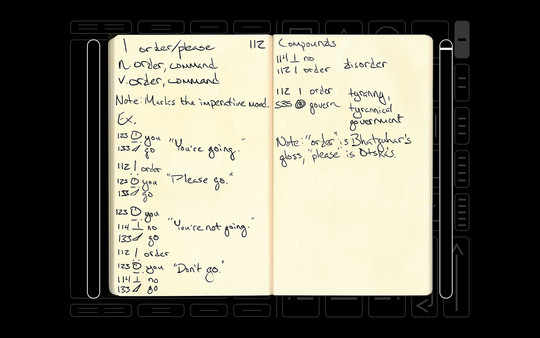 | order/please 112
n. order, command
v. order, command
Note: Marks the imperative mood.
Ex.
123 you
133 go
"You're going."
112 | order
123 you
133 go
"Please go."
123 you
114 ⊥ no
133 go
"You're not going."
112 | order
123 you
114 ⊥ no
133 go
"Don't go."
Compounds
114 ⊥ no
112 | order
disorder
112 | order
535 govern
tyranny,
tyrannical
government
Note: "order" is
gloss, "please" is